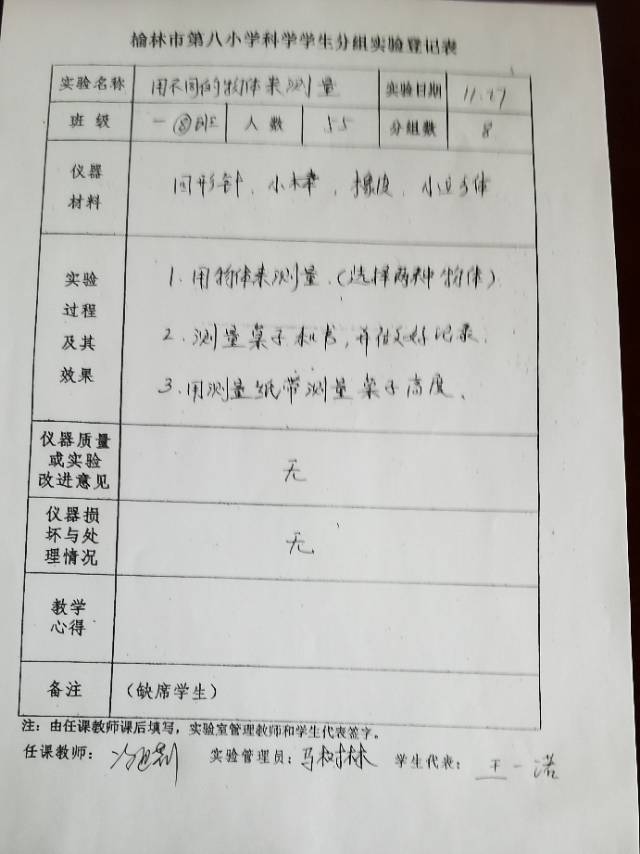 榆林市第八小学科学学生分组实验登记表
实验名称 用不同的物体来测量 实验日期 11.27
班级 一⑧班 人数 55 分组数 8
仪器
材料
回形针、小棒、橡皮、小立方体
实验
过程
及其
效果
1.用物体来测量.(选择两种物体)
2.测量桌子和书,并做好记录.
3.用测量纸带测量桌子高度、
仪器质量
或实验
改进意见
无
仪器损
坏与处
理情况
无
教学
心得
备注 (缺席学生)
注:由任课教师课后填写,实验室管理教师和学生代表签字。
任课教师: 实验管理员:马树林 学生代表:王一诺